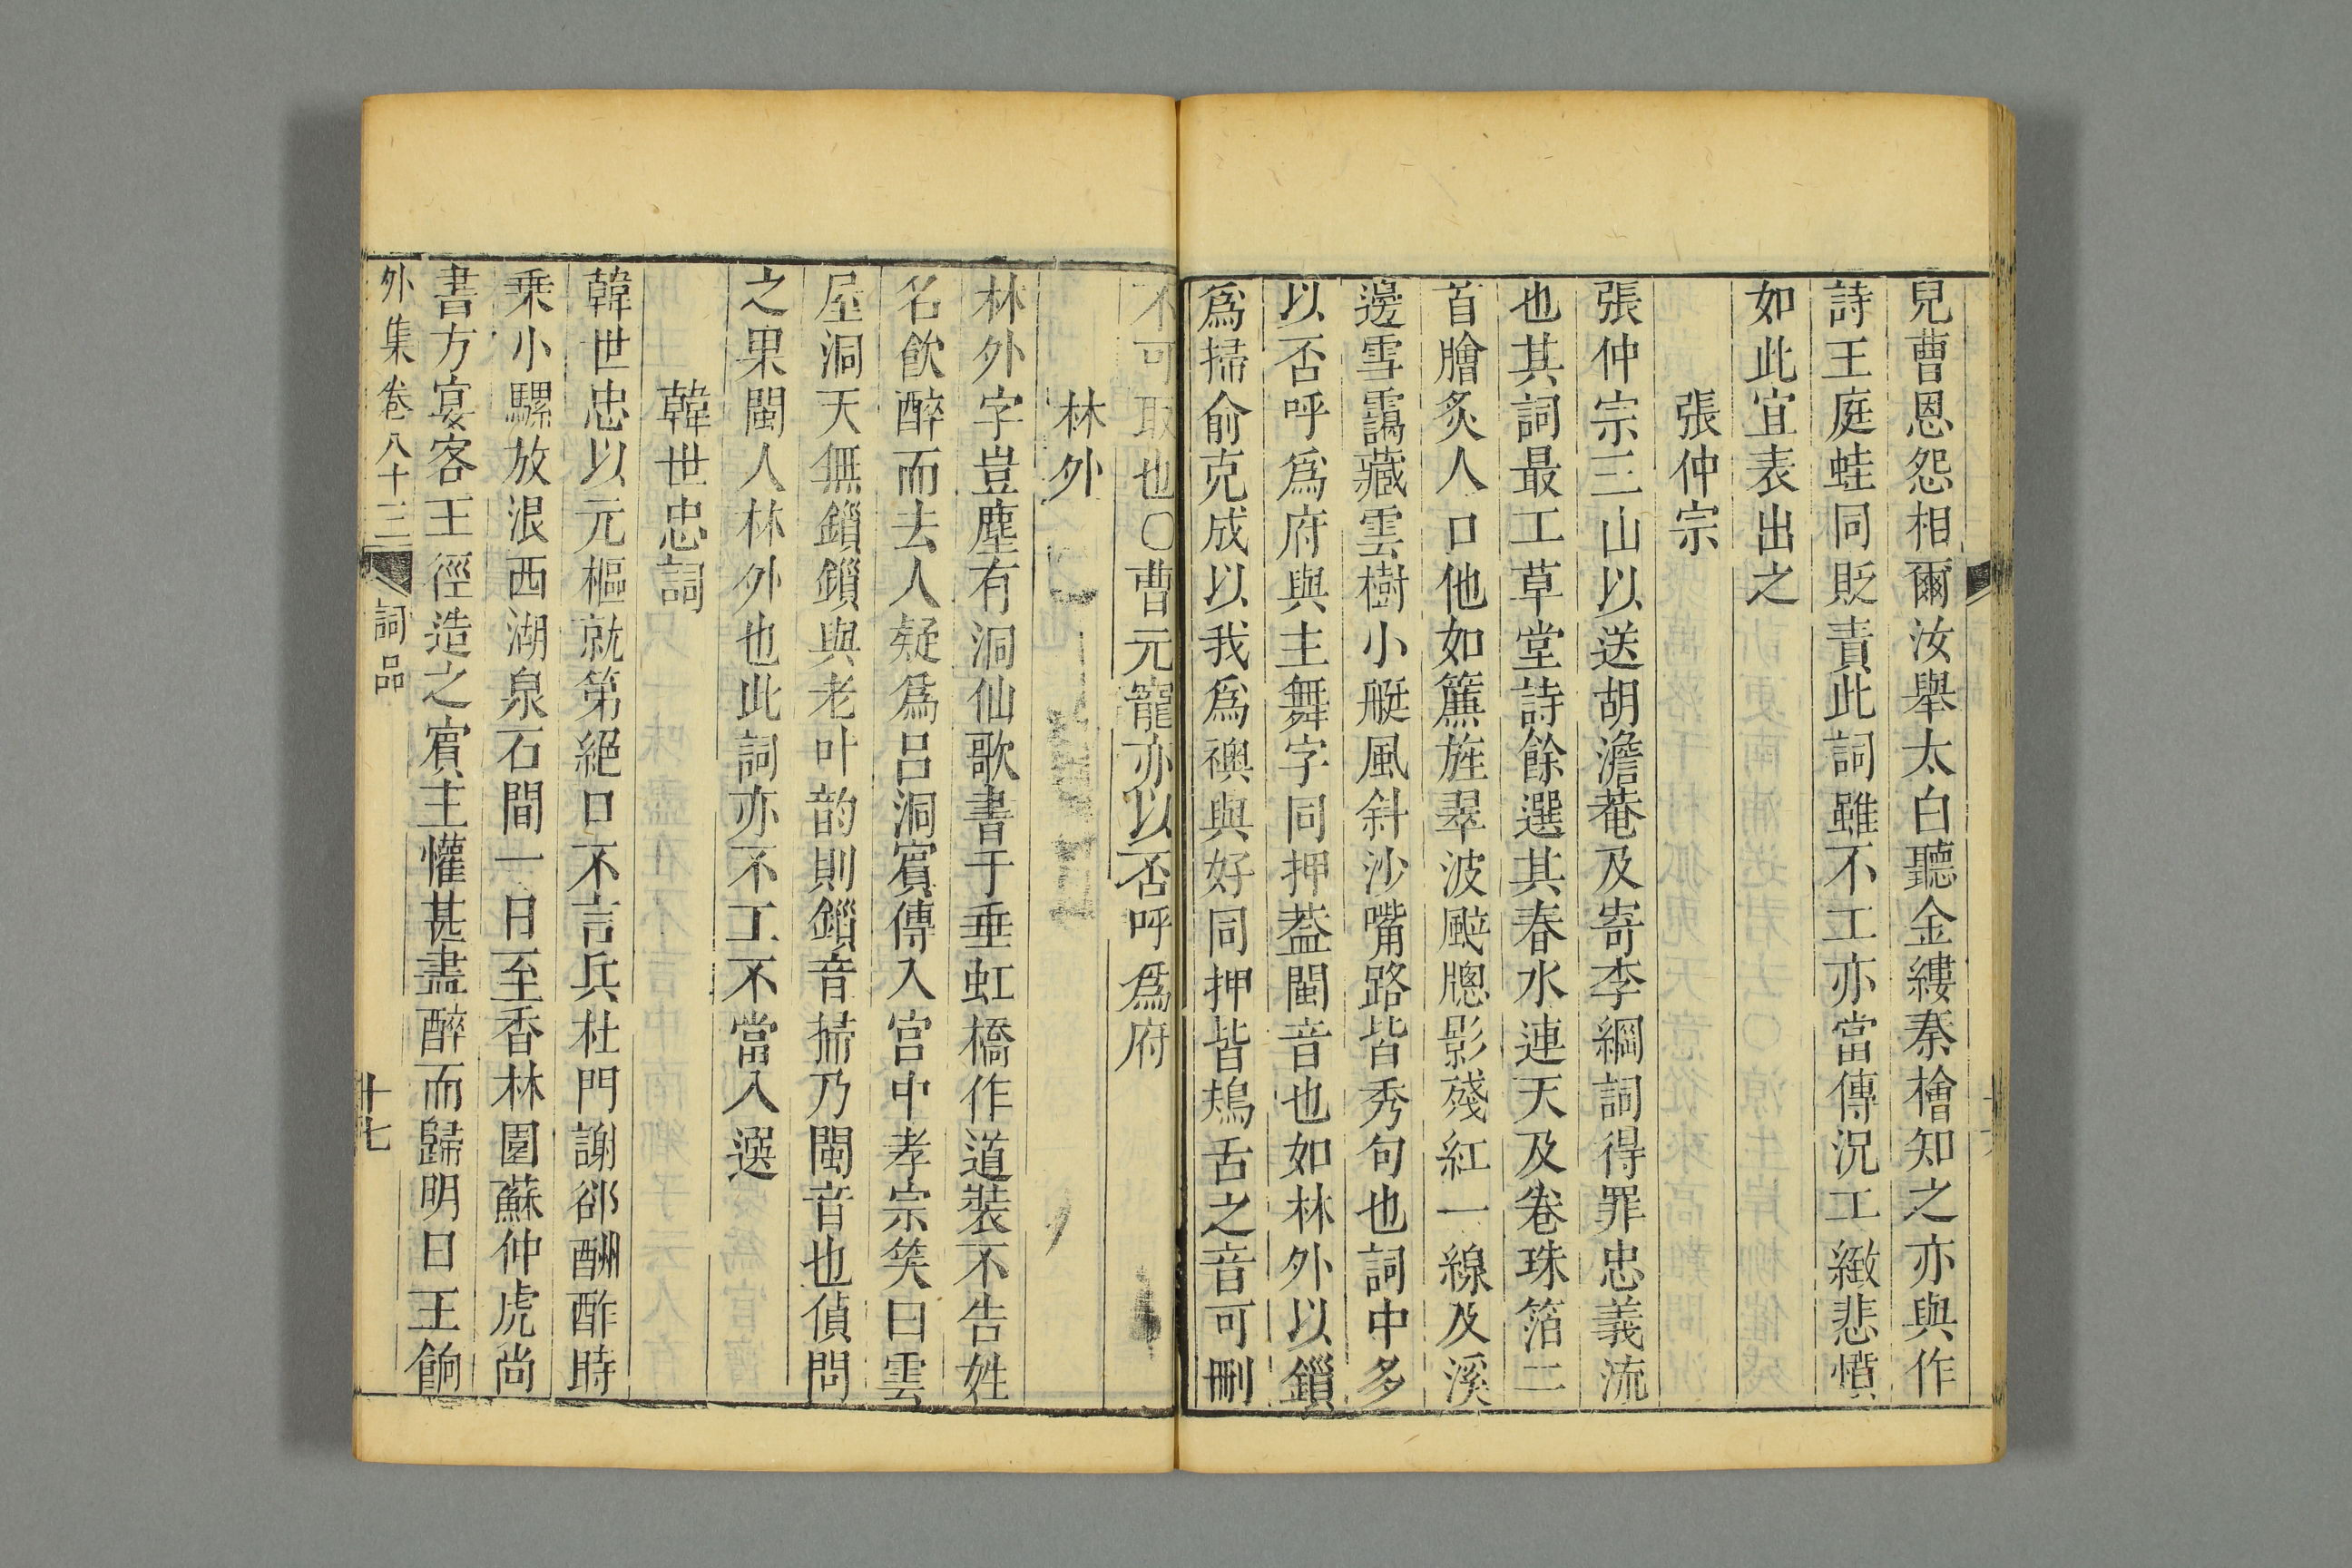 兒曹恩怨相爾汝舉太白聽金縷秦檜知之亦與作
詩王庭蛙同貶責此詞雖不工亦當傳況工緻悲憤
如此宜表出之
張仲宗
張仲宗三山以送胡澹菴及寄李綱詞得罪忠義流
也其詞最工草堂詩餘選其春水連天及卷珠箔二
首膾炙人口他如簾旌翠波颭牕影殘紅一線及溪
邊雪靄藏雲樹小艇風斜沙嘴路皆秀句也詞中多
以否呼爲府與主舞字同押葢閩音也如林外以鎖
爲掃俞克成以我爲襖與好同押皆鴂舌之音可刪
不可取也○曹元寵亦以否呼爲府
林外
林外字豈塵有洞仙歌書于垂虹橋作道裝不告姓
名飲醉而去人疑爲呂洞賓傳入宮中孝宗笑曰雲
屋洞天無鎖鎖與老叶韵則鎖音掃乃閩音也偵問
之果閩人林外也此詞亦不工不當入選
韓世忠詞
韓世忠以元樞就第絕口不言兵杜門謝郤酬酢時
乗小騾放浪西湖泉石間一日至香林園蘇仲虎尚
書方宴客王徑造之賓主懽甚盡醉而歸明日王餉
外集卷八十三 詞品 十七